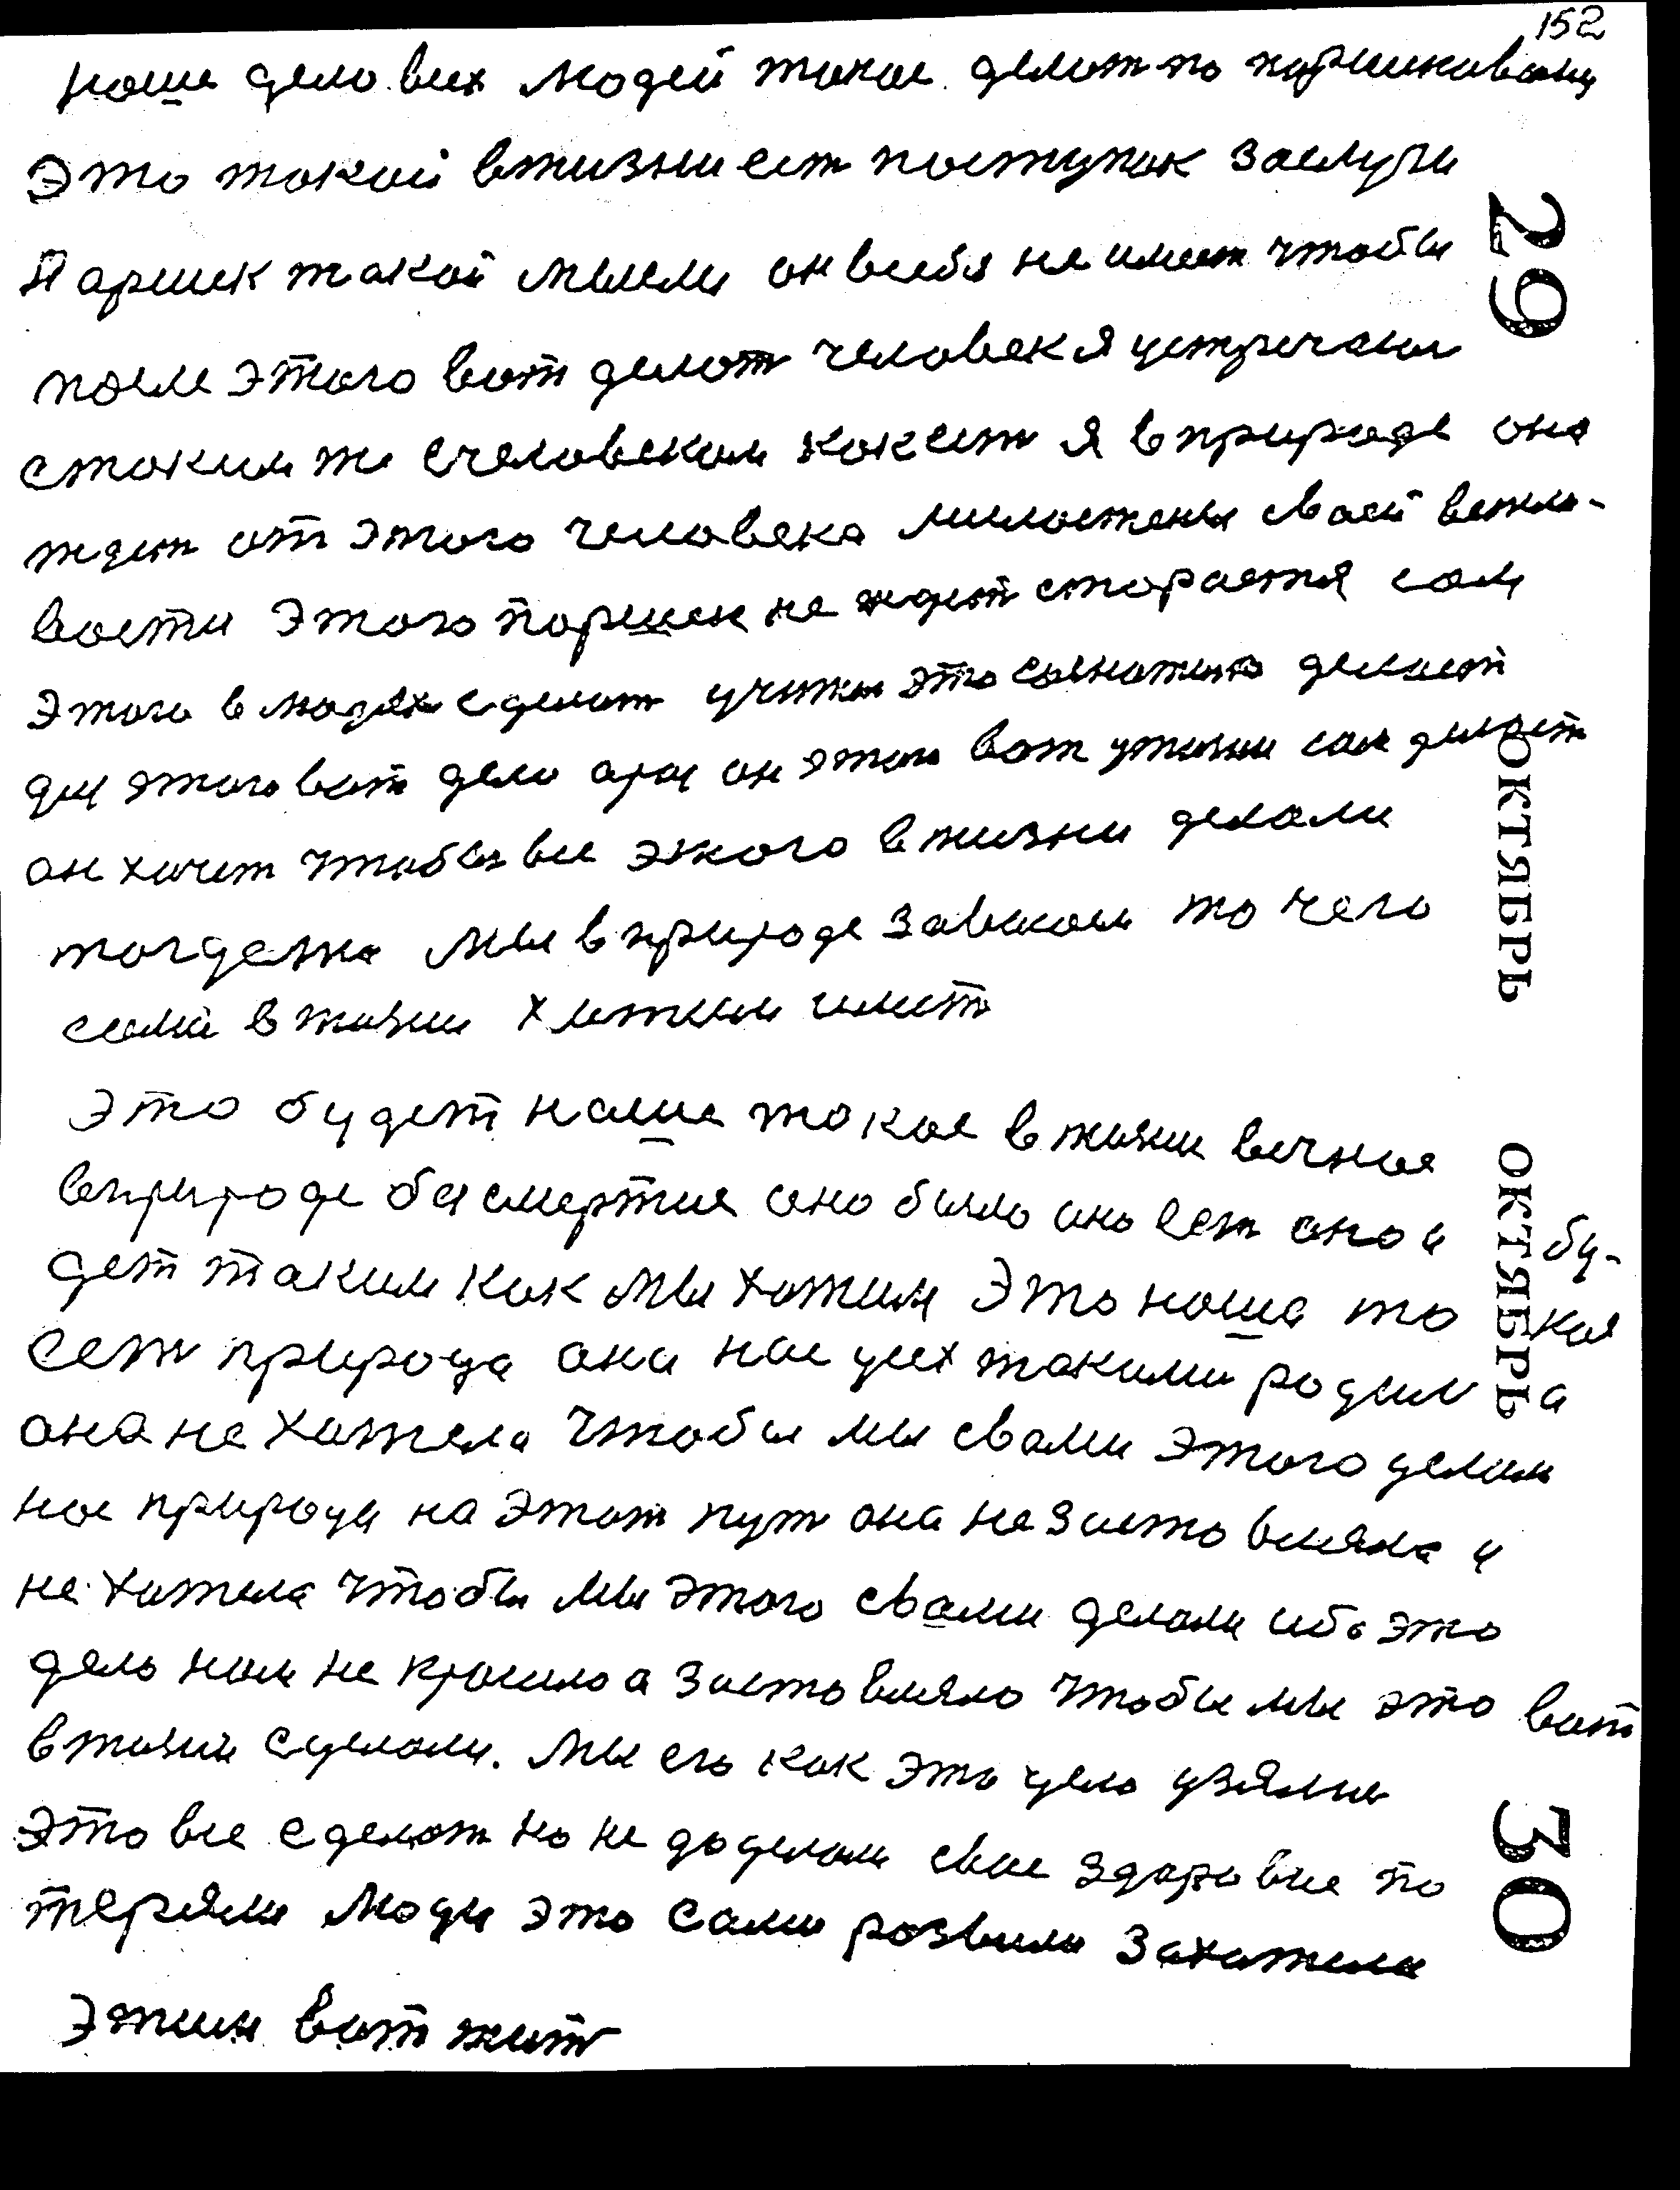 152
наше дело всех людей такое. делат по паршиковому
Это такой вжизни ест поступок заслуги
Паршек такой мысли он всебя не имеет чтобы
после этого вот делат человек я устречаюс
стаким же счеловеком как ест я вприроде оно
ждет от этого человека милостеня своей вежли-
вости этого паршек не ждет старается сам
этого в людях сделат учитес это сознателно делает
для этого вот дела он этого вот ужизни сам делает
он хочет чтобы все этого вжизни делали
тогдето мы вприроде завоюем то чего
сами вжизни хотим имет
это будет наше такое вжизни вечное
вприроде бесмертие оно было оно ест оно и бу-
дет таким как мы хотим Это наша та кая
ест природа она нас усех такими родила
она не хотела чтобы мы свами этого делали
нас природа на этот пут она не заставляла и
не хотела чтобы мы этого свами делали ибо это
дело нам не красило а заставляло чтобы мы это вот
вжизни сделали. мы его как это дело узяли
это все сделат но не доделали свое здоровие по
теряли люди это сами розвили захотели
этим вот жит
29
ОКТЯБРЬ
ОКТЯБРЬ
30